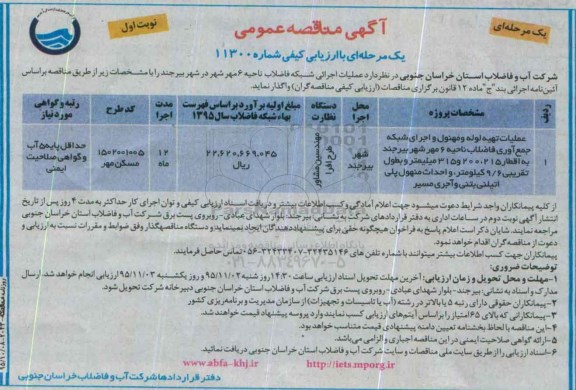 یک مرحله‌ای
آگهی مناقصه عمومی
نوبت اول
یک مرحله‌ای با ارزیابی کیفی شماره ۱۱۳۰۰
شرکت آب و فاضلاب استان خراسان جنوبی در نظر دارد عملیات اجرائی شبکه فاضلاب ناحیه ۶ مهر شهر در شهر بیرجند را با مشخصات زیر از طریق مناقصه براساس
آئین‌نامه اجرائی بند "ج" ماده ۱۲ قانون برگزاری مناقصات (ارزیابی کیفی مناقصه گران) واگذار نماید.
ردیف
مشخصات پروژه
محل اجرا
دستگاه نظارت
مبلغ اولیه برآورد براساس فهرست بهاء شبکه فاضلاب سال ۱۳۹۵
مدت اجرا
کد طرح
رتبه و گواهی مورد نیاز
۱
عملیات تهیه لوله و منهول و اجرای شبکه
جمع آوری فاضلاب ناحیه ۶ مهر شهر بیرجند
به اقطار ۲۰۰،۲۱۵ و ۳۱۵ میلیمتر و بطول
تقریبی ۹/۶ کیلومتر، و احداث منهول پلی
اتیلنی، بتنی و آجری مسیر
شهر بیرجند
مهندسین مشاور طرح افرا
۲۲,۶۲۰,۶۶۹,۰۴۵ ریال
۱۲ ماه
۱۵۰۲۰۰۱۰۰۵ مسکن مهر
حداقل پایه ۵ آب و گواهی صلاحیت ایمنی
از کلیه پیمانکاران واجد شرایط دعوت میشود جهت اعلام آمادگی و کسب اطلاعات بیشتر و دریافت اسناد ارزیابی کیفی و توان اجرای کار حداکثر به مدت ۴ روز پس از تاریخ
انتشار آگهی نوبت دوم در ساعات اداری به دفتر قراردادهای شرکت به نشانی: بیرجند، بلوار شهدای عبادی، روبروی پست برق شرکت آب و فاضلاب استان خراسان جنوبی
مراجعه نمایند. شایان ذکر است اعلام پاسخ به فراخوان هیچگونه حقی برای پیشنهاددهندگان ایجاد نمینماید و دستگاه مناقصه‌گذار وفق ضوابط و مقررات نسبت به ارزیابی و
دعوت از مناقصه گران اقدام خواهد نمود.
پیمانکاران جهت کسب اطلاعات بیشتر میتوانند با شماره تلفن‌های
تماس حاصل فرمایند.
توضیحات ضروری:
۱-مهلت و محل تحویل و زمان ارزیابی: آخرین مهلت تحویل اسناد ارزیابی ساعت ۱۴:۳۰ روز شنبه ۹۵/۱۱/۰۲ و روز یکشنبه ۹۵/۱۱/۰۳ ارزیابی انجام خواهد شد. ارسال
مدارک و اسناد به نشانی: بیرجند- بلوار شهدای عبادی- روبروی پست برق شرکت آب و فاضلاب استان خراسان جنوبی دبیرخانه شرکت تحویل شود.
۲-پیمانکاران حقوقی دارای رتبه ۵ یا بالاتر در رشته (آب یا تاسیسات و تجهیزات) از سازمان مدیریت و برنامه‌ریزی کشور
۳-پیمانکارانی که بالای ۶۵ امتیاز را براساس آیتم‌های ارزیابی کسب نمایند وارد پروسه پیشنهاد قیمت خواهند شد.
۴-این مناقصه با لحاظ بخشنامه تعیین دامنه پیشنهادی قیمت متناسب خواهد بود.
۵-ارائه گواهی صلاحیت ایمنی در این مناقصه اجباری و الزامی می‌باشد.
۶-اسناد ارزیابی را از طریق سایت ملی مناقصات و سایت شرکت آب و فاضلاب استان خراسان جنوبی دریافت نمائید.
http://iets.mporg.ir
www.abfa-khj.ir
دفتر قراردادها شرکت آب و فاضلاب خراسان جنوبی